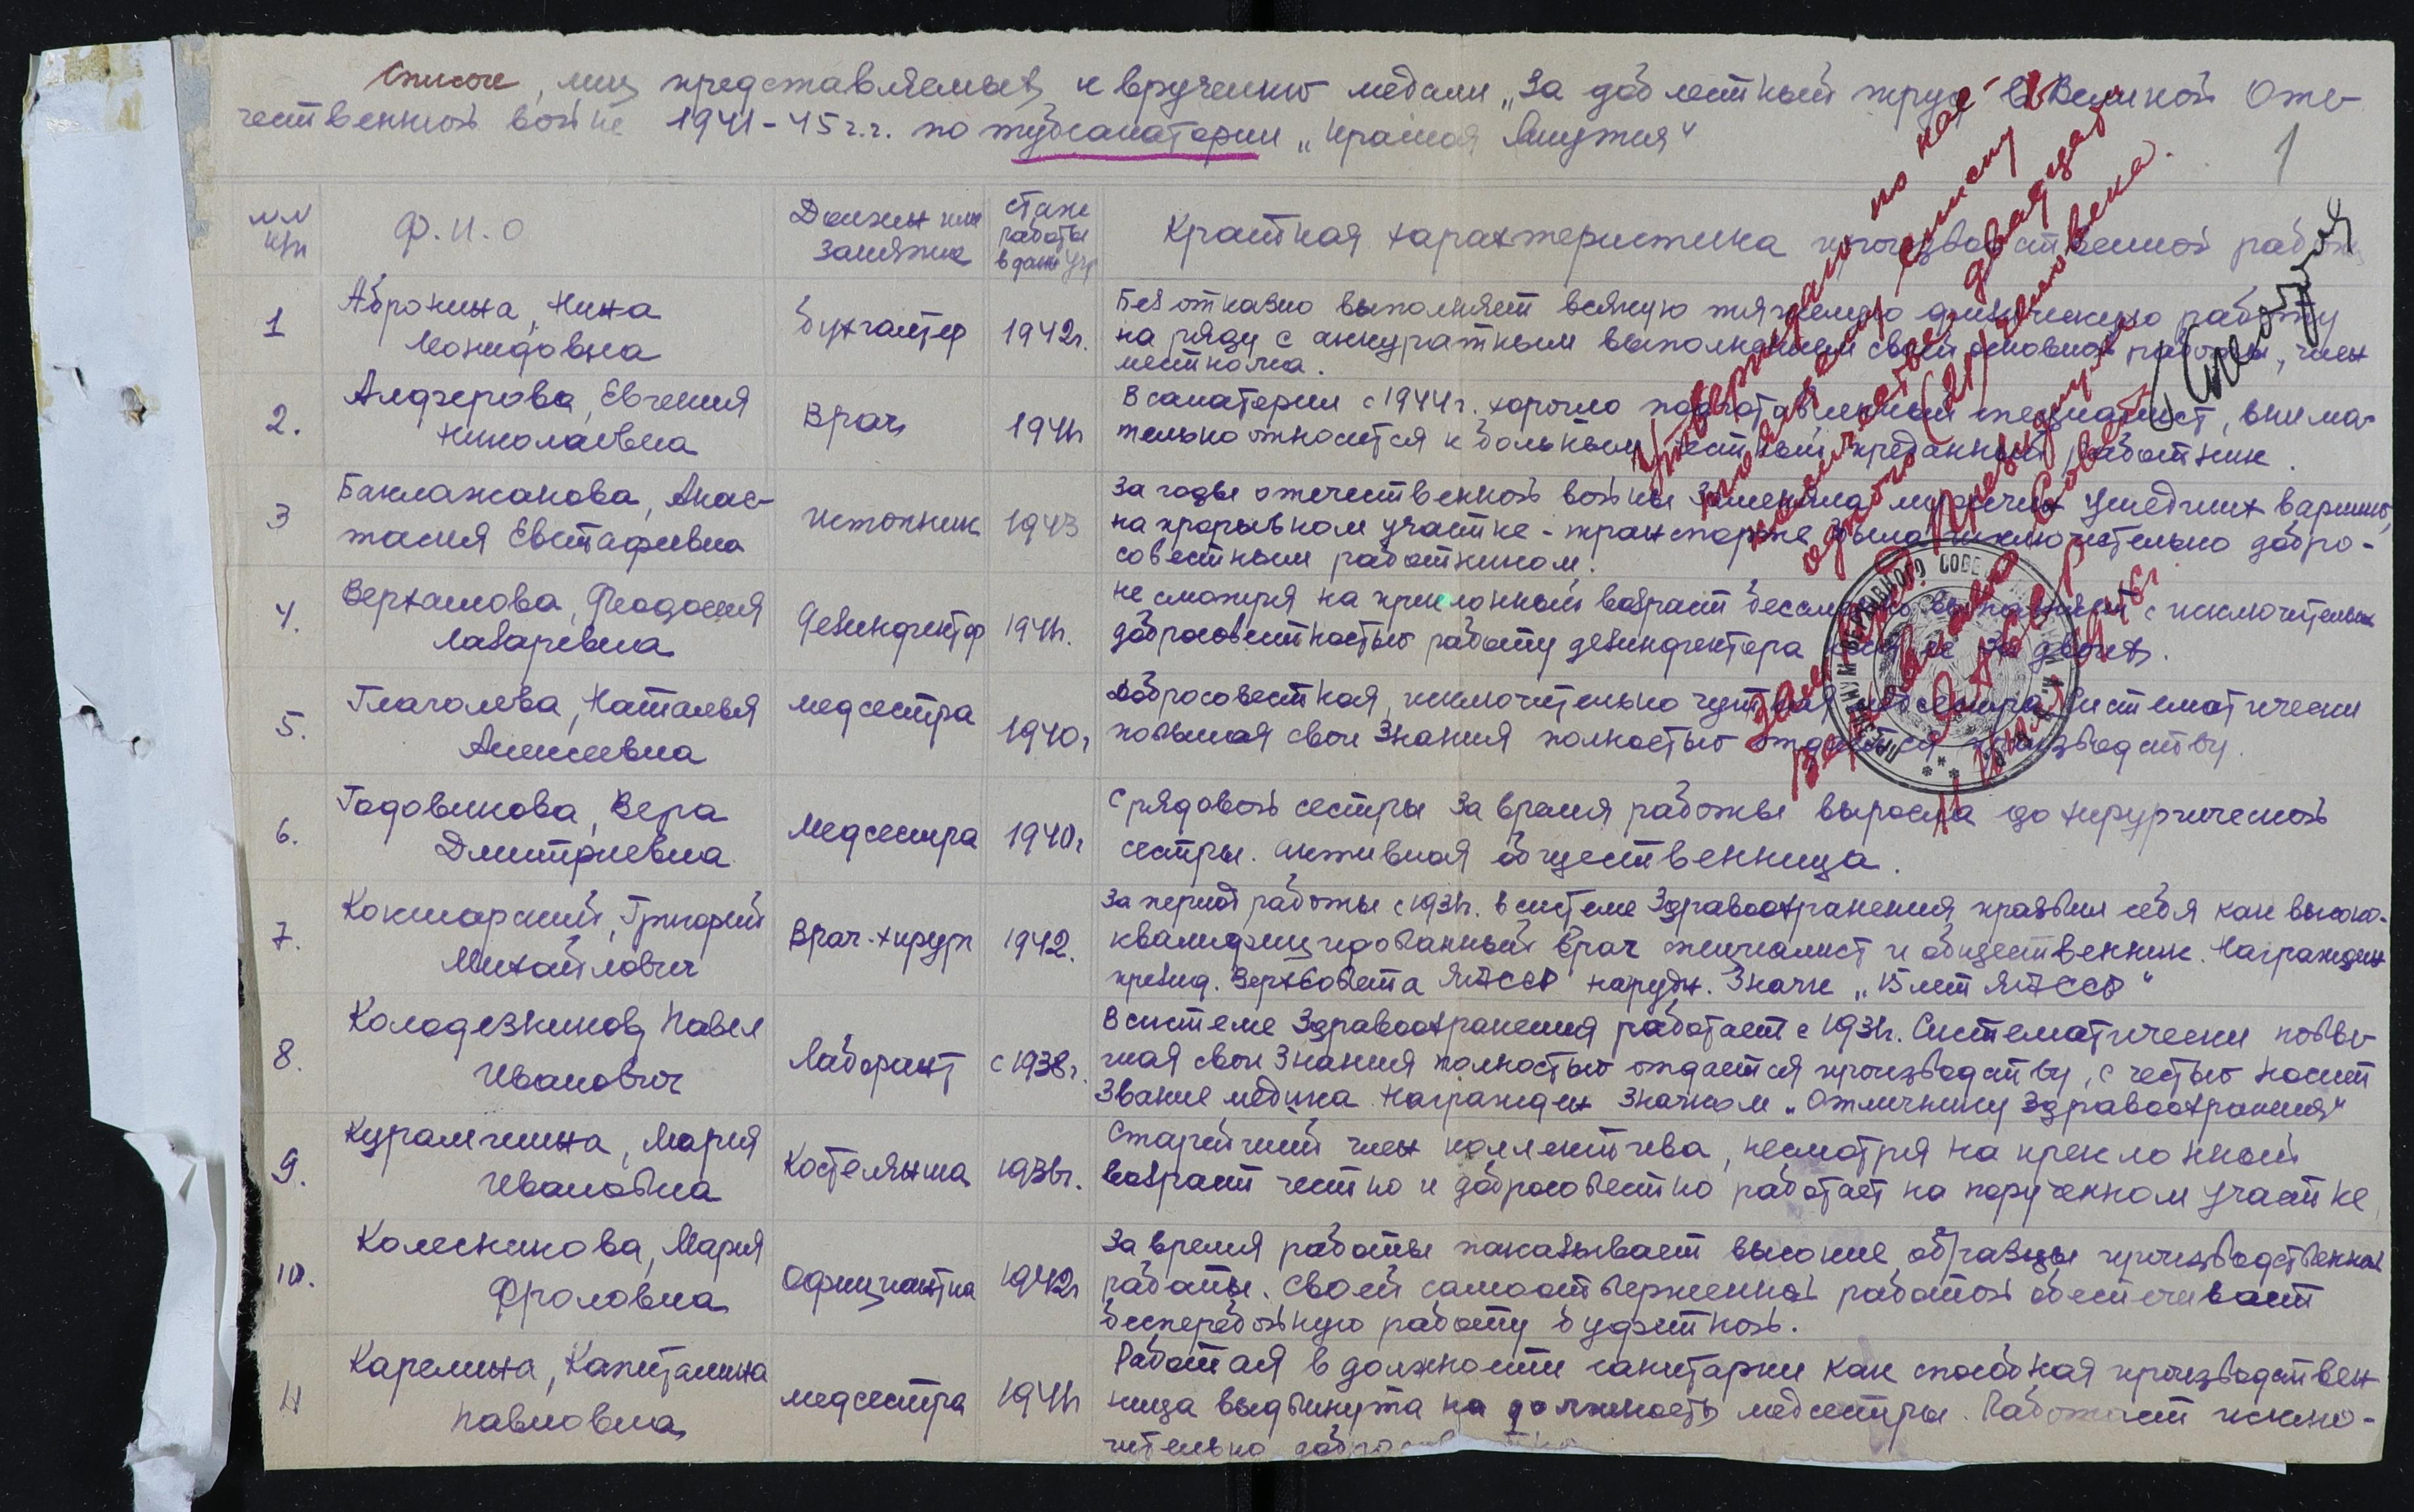 Список, лиц представляемых к вручению медали „За доблестный труд в Великой Оте-
чественной войне 1941-45 г.г. по тубсанатории „Красная Якутия"
1
№№ п/п
Ф.И.О
Должн или занятие
стаж работы в дан учр
Краткая характеристика производственной работы
1
Абронина, Нина
Леонидовна
бухгалтер
1942г.
Безотказно выполняет всякую тяжелую физическую работу
на ряду с аккуратным выполнением своей основной работы, член
месткома.
2.
Алферова, Евгения
Николаевна
Врач
1944
В санатории с 1944г. хорошо подготовленный специалист, внима-
тельно относится к больным, честный преданный работник.
3
Баклажанова, Анас-
тасия Евстафиевна
истопник
1943
За годы отечественной войны заменила мужчин ушедших в армию,
на прорывном участке - транспорте была исключительно добро-
совестным работником.
4.
Верхашова, Феодосия
Лазаревна
Дезинфектор
1941г.
не смотря на приклонный возраст бессменно выполняет с исключительн
добросовестностью работу дезинфектора
за двоих.
5.
Глаголева, Наталья
Алексеевна
медсестра
1940г
Добросовестная, исключительно чуткая медсестра. Систематически
повышая свои знания полностью отдается производству.
6.
Годовикова, Вера
Дмитриевна
Медсестра
1940г
С рядовой сестры за время работы выросла до хирургической
сестры. Активная общественница.
7.
Кокшарский, Григорий
Михайлович
Врач-хирург
1942.
За период работы с 1931г. в системе Здравоохранения проявил себя как высоко-
квалифицированный врач специалист и общественник. Награжден
презид. Верхсовета ЯАССР нагрудн. Значк „15 лет ЯАССР"
8.
Колодезников, Павел
Иванович
Лаборант
с 1938г.
В системе Здравоохранения работает с 1931г. Систематически повы-
шая свои знания полностью отдается производству, с честью носит
Звание медика. Награжден Значком „Отличнику Здравоохранения"
9.
Курамшина, Мария
Ивановна
Костелянша
1936г.
Старейший член коллектива, несмотря на преклонный
возраст честно и добросовестно работает на порученном участке
10.
Колесникова, Мария
Фроловна
Официантка
1942г
За время работы показывает высокие образцы производственной
работы. Своей самоотверженной работой обеспечивает
бесперебойную работу буфетной.
11
Карелина, Капиталина
Павловна
медсестра
1941г
Работая в должности санитарки как способная производствен
ница выдвинута на должность медсестры. Работает исклю-
чительно
Утверждаю по нас-
тоящему списку
к награждению
двадцать
одного (21) человека.
Зам Пред Президиума
Верховного Совета
ЯАССР
11 июля 1946г
ПРЕЗИДИУМ ВЕРХОВНОГО СОВЕТА